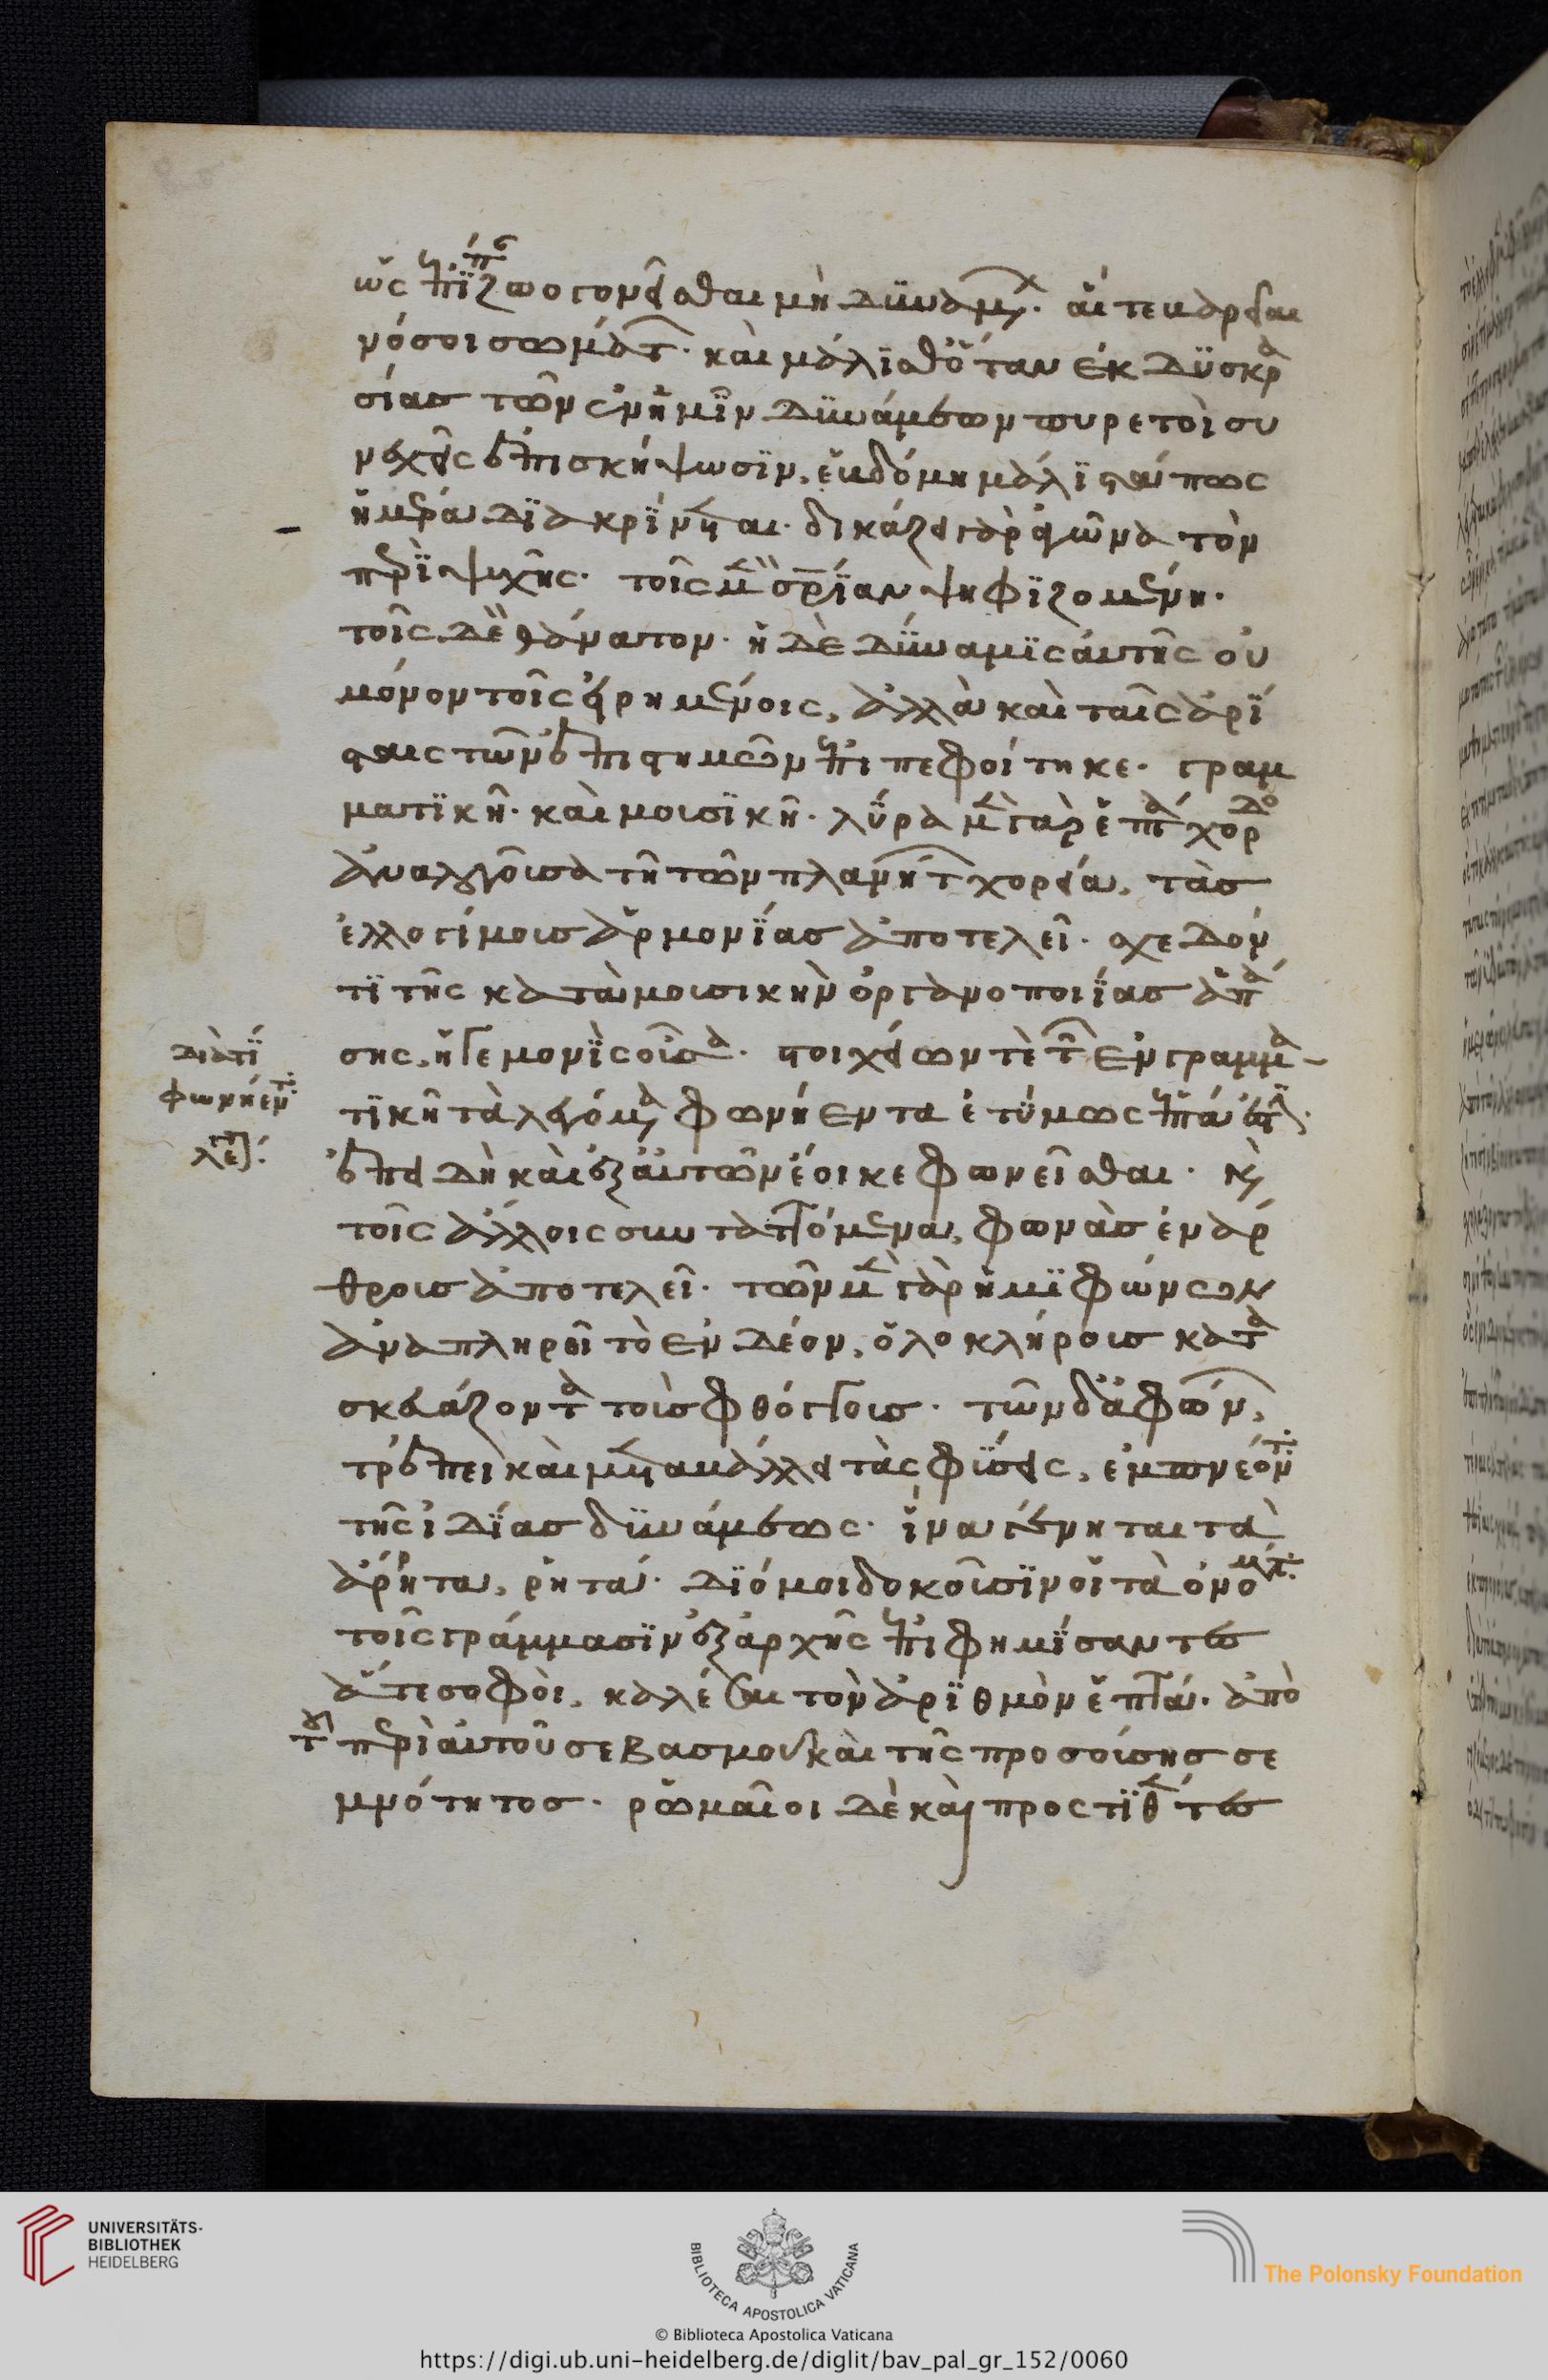 ὡς ἐπίπαν ζωογονεῖσθαι μὴ δυναμένων. αἵ τε βαρεῖαι
νόσοι σωμάτων. καὶ μάλισθ' ὅταν ἐκ δυσκρα
σίας τῶν ἐν ἡμῖν δυνάμεων πυρετοὶ συ
νεχεῖς ἐπισκήψωσιν, ἑβδόμη μάλιστά πως
ἡμέρα διακρίνεται. δικάζει γὰρ ἀγῶνα τὸν
περὶ ψυχῆς. τοῖς μὲν σωτηρίαν ψηφιζομένη.
τοῖς δὲ θάνατον. ἡ δὲ δύναμις αὐτῆς οὐ
μόνον τοῖς εἰρημένοις, ἀλλὰ καὶ ταῖς ἀρί
σταις τῶν ἐπιστημῶν ἐπιπεφοίτηκε. γραμ
ματικῆ. καὶ μουσικῆ. λύρα μὲν γὰρ ἑπτάχορδο
ἀναλογοῦσα τῆ τῶν πλανήτων χορεία, τὰς
ἐλλογίμους ἁρμονίας ἀποτελεῖ. σχεδόν
τι τῆς κατὰ μουσικὴν ὀργανοποιίας ἁπά
σης, ἡγεμονὶς οὖσα. στοιχείων τὲ τῶν ἐν γραμμα
τικῆ τὰ λεγόμενα φωνήεντα ἐτύμως ἑπτά ἐστιν.
ἐπειδὴ καὶ ἐξ αὑτῶν ἔοικε φωνεῖσθαι. καὶ
τοῖς ἄλλοις συνταττόμενα, φωνὰς ἐνάρ
θρους ἀποτελεῖ. τῶν μὲν γὰρ ἡμιφώνων
ἀναπληροῖ τὸ ἐνδέον, ὁλοκλήρους κατα
σκευάζοντα τοὺς φθόγγους. τῶν δ' ἀφώνων,
τρέπει καὶ μεταβάλλει τὰς φύσεις, ἐμπνέοντα
τῆς ἰδίας δυνάμεως. ἵνα γένηται τὰ
ἄρρητα, ῥητά. διό μοι δοκοῦσιν οἱ τὰ ὀνόματα
τοῖς γράμμασιν ἐξ ἀρχῆς ἐπιφημίσαντες
ἅτε σοφοὶ, καλέσαι τὸν ἀριθμὸν ἑπτά. ἀπὸ
τοῦ περὶ αὐτοῦ σεβασμοῦ καὶ τῆς προσούσης σε
μνότητος. ῥωμαῖοι δὲ καὶ προστιθέντες
διὰ τί
φωνήεντα
λέγεται:
UNIVERSITÄTS-
BIBLIOTHEK
HEIDELBERG
BIBLIOTECA APOSTOLICA VATICANA
The Polonsky Foundation
© Biblioteca Apostolica Vaticana
https://digi.ub.uni-heidelberg.de/diglit/bav_pal_gr_152/0060